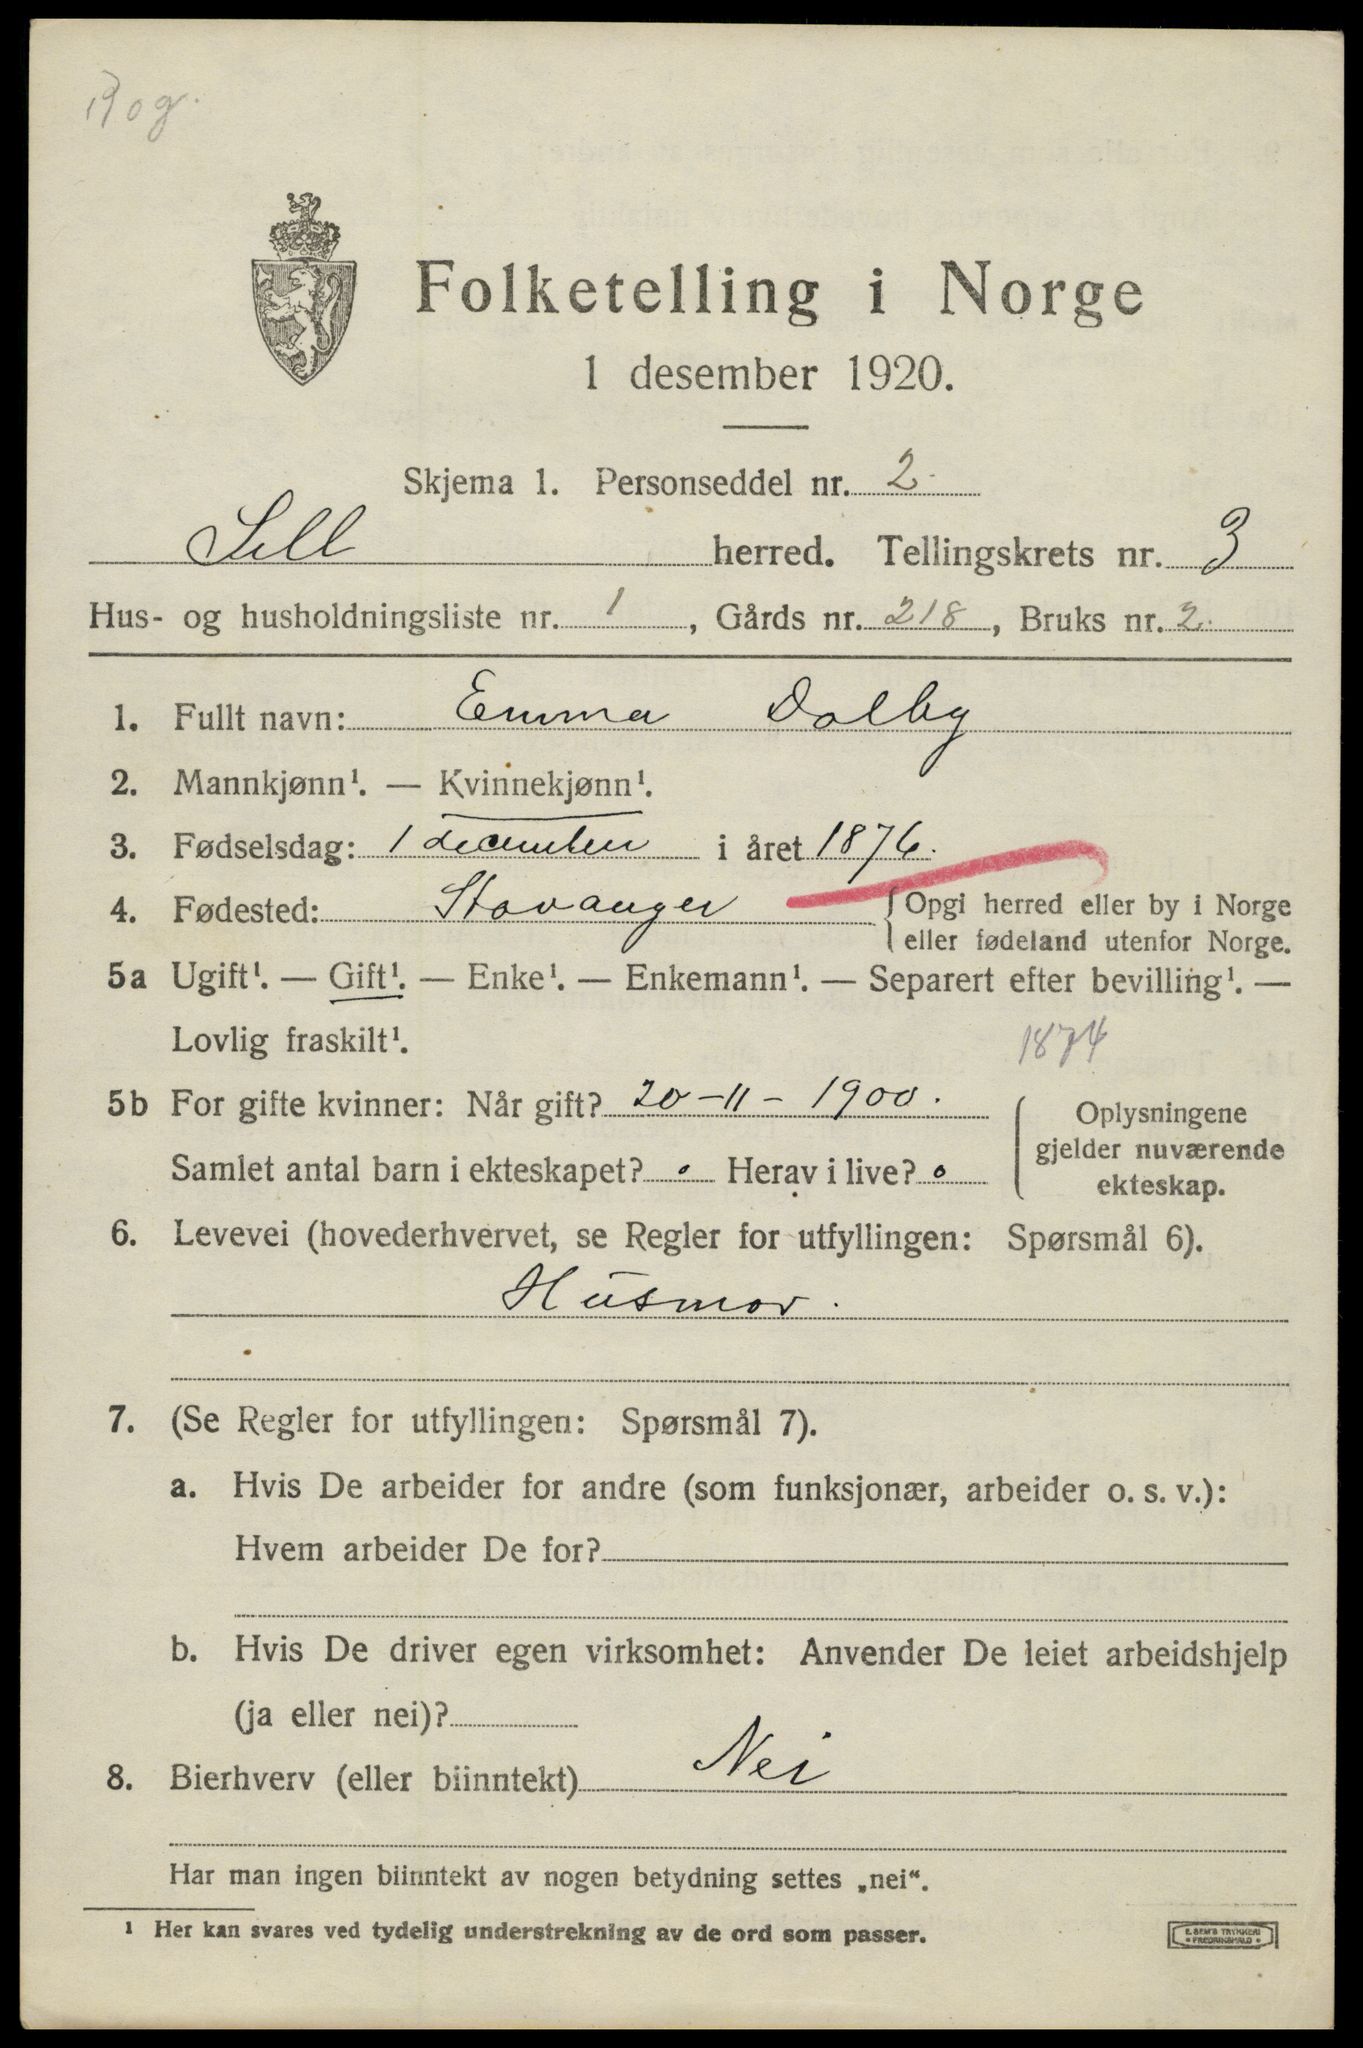 Rog.
Folketelling i Norge
1 desember 1920.
Skjema 1. Personseddel nr. 2.
Sell herred. Tellingskrets nr. 3
Hus- og husholdningsliste nr. 1, Gårds nr. 218, Bruks nr. 2.
1. Fullt navn: Emma Dalby
2. Mannkjønn¹. — Kvinnekjønn¹.
3. Fødselsdag: 1 december i året 1876.
4. Fødested: Stavanger { Opgi herred eller by i Norge
eller fødeland utenfor Norge.
5a Ugift¹. — Gift¹. — Enke¹. — Enkemann¹. — Separert efter bevilling¹. —
Lovlig fraskilt¹.
1874
5b For gifte kvinner: Når gift? 20-11-1900. { Oplysningene
gjelder nuværende
ekteskap.
Samlet antal barn i ekteskapet? 0 Herav i live? 0
6. Levevei (hovederhvervet, se Regler for utfyllingen: Spørsmål 6).
Husmor.
7. (Se Regler for utfyllingen: Spørsmål 7).
a. Hvis De arbeider for andre (som funksjonær, arbeider o. s. v.):
Hvem arbeider De for?
b. Hvis De driver egen virksomhet: Anvender De leiet arbeidshjelp
(ja eller nei)?
8. Bierhverv (eller biinntekt) Nei
Har man ingen biinntekt av nogen betydning settes „nei“.
¹ Her kan svares ved tydelig understrekning av de ord som passer.
E. SEM'S TRYKKERI
FREDRIKSHALD